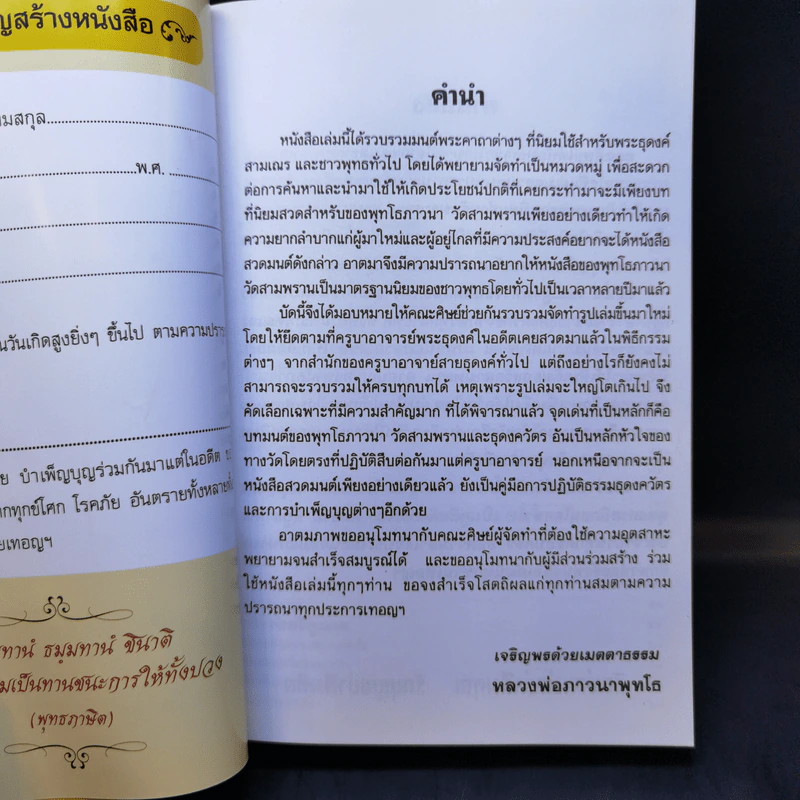 ญสร้างหนังสือ
มสกุล
พ.ศ.
นวันเกิดสูงยิ่งๆ ขึ้นไป ตามความปรา
ย บำเพ็ญบุญร่วมกันมาแต่ในอดีต
กทุกข์โศก โรคภัย อันตรายทั้งหลาย
ยเทอญฯ
ทานํ ธมฺมทานํ ชินาติ
มเป็นทานชนะการให้ทั้งปวง
(พุทธภาษิต)
คำนำ
หนังสือเล่มนี้ได้รวบรวมมนต์พระคาถาต่างๆ ที่นิยมใช้สำหรับพระธุดงค์
สามเณร และชาวพุทธทั่วไป โดยได้พยายามจัดทำเป็นหมวดหมู่ เพื่อสะดวก
ต่อการค้นหาและนำมาใช้ให้เกิดประโยชน์ปกติที่เคยกระทำมาจะมีเพียงบท
ที่นิยมสวดสำหรับของพุทโธภาวนา วัดสามพรานเพียงอย่างเดียวทำให้เกิด
ความยากลำบากแก่ผู้มาใหม่และผู้อยู่ไกลที่มีความประสงค์อยากจะได้หนังสือ
สวดมนต์ดังกล่าว อาตมาจึงมีความปรารถนาอยากให้หนังสือของพุทโธภาวนา
วัดสามพรานเป็นมาตรฐานนิยมของชาวพุทธโดยทั่วไปเป็นเวลาหลายปีมาแล้ว
บัดนี้จึงได้มอบหมายให้คณะศิษย์ช่วยกันรวบรวมจัดทำรูปเล่มขึ้นมาใหม่
โดยให้ยึดตามที่ครูบาอาจารย์พระธุดงค์ในอดีตเคยสวดมาแล้วในพิธีกรรม
ต่างๆ จากสำนักของครูบาอาจาย์สายธุดงค์ทั่วไป แต่ถึงอย่างไรก็ยังคงไม่
สามารถจะรวบรวมให้ครบทุกบทได้ เหตุเพราะรูปเล่มจะใหญ่โตเกินไป จึง
คัดเลือกเฉพาะที่มีความสำคัญมาก ที่ได้พิจารณาแล้ว จุดเด่นที่เป็นหลักก็คือ
บทมนต์ของพุทโธภาวนา วัดสามพรานและธุดงควัตร อันเป็นหลักหัวใจของ
ทางวัดโดยตรงที่ปฏิบัติสืบต่อกันมาแต่ครูบาอาจารย์ นอกเหนือจากจะเป็น
หนังสือสวดมนต์เพียงอย่างเดียวแล้ว ยังเป็นคู่มือการปฏิบัติธรรมธุดงควัตร
และการบำเพ็ญบุญต่างๆอีกด้วย
อาตมภาพขออนุโมทนากับคณะศิษย์ผู้จัดทำที่ต้องใช้ความอุตสาหะ
พยายามจนสำเร็จสมบูรณ์ได้ และขออนุโมทนากับผู้มีส่วนร่วมสร้าง ร่วม
ใช้หนังสือเล่มนี้ทุกๆท่าน ขอจงสำเร็จโสตถิผลแก่ทุกท่านสมตามความ
ปรารถนาทุกประการเทอญฯ
เจริญพรด้วยเมตตาธรรม
หลวงพ่อภาวนาพุทโธ